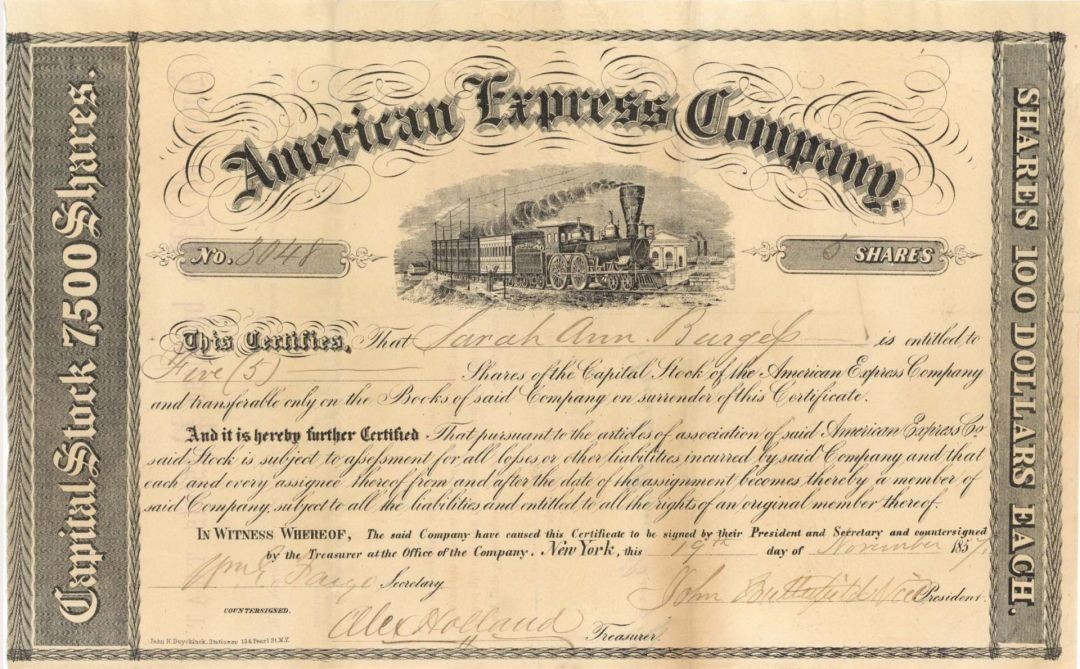 American Express Company.
Capital Stock 7,500 Shares.
SHARES 100 DOLLARS EACH.
No. 3048
5 SHARES
This Certifies, That Sarah Ann Burgess is entitled to
Five (5) Shares of the Capital Stock of the American Express Company
and transferable only on the Books of said Company on surrender of this Certificate.
And it is hereby further Certified That pursuant to the articles of association of said American Express Co
said Stock is subject to assessment for all losses or other liabilities incurred by said Company and that
each and every assignee thereof from and after the date of the assignment becomes thereby a member of
said Company, subject to all the liabilities and entitled to all the rights of an original member thereof.
IN WITNESS WHEREOF, The said Company have caused this Certificate to be signed by their President and Secretary and countersigned
by the Treasurer at the Office of the Company. New York, this 19th day of November 1857
Wm G. Fargo Secretary John Butterfield Vice President.
COUNTERSIGNED.
Alex Holland Treasurer.
John H. Duyckinck, Stationer 134 Pearl St. N.Y.